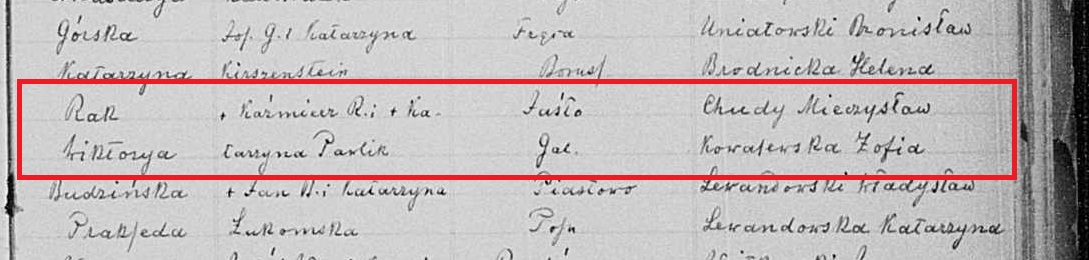 Górska Jos. G. i Katarzyna Uniatowski Bronisław
Katarzyna Kirszenstein Boruss Brodnicka Helena
Rak + Kaźmierz R. i + Ka- Jasło Chudy Mieczysław
Wiktorya tarzyna Pawlik Gal. Kowalewska Zofia
Budzińska + Jan B. i Katarzyna Piastowo Lewandowski Władysław
Praxseda Łukomska Posn Lewandowska Katarzyna